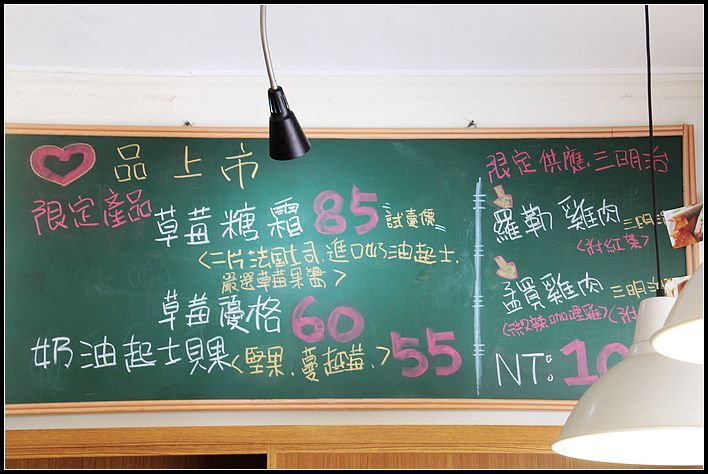 品上市
限定產品
草莓糖霜 85 試賣價
<二片法國吐司.進口奶油起士.
嚴選草莓果醬>
草莓優格 60
奶油起士貝果<堅果.蔓越莓.>55
限定供應.三明治
羅勒雞肉 三明治
<附紅茶>
孟買雞肉 三明治
(微辣咖哩雞)(附
NT: 10